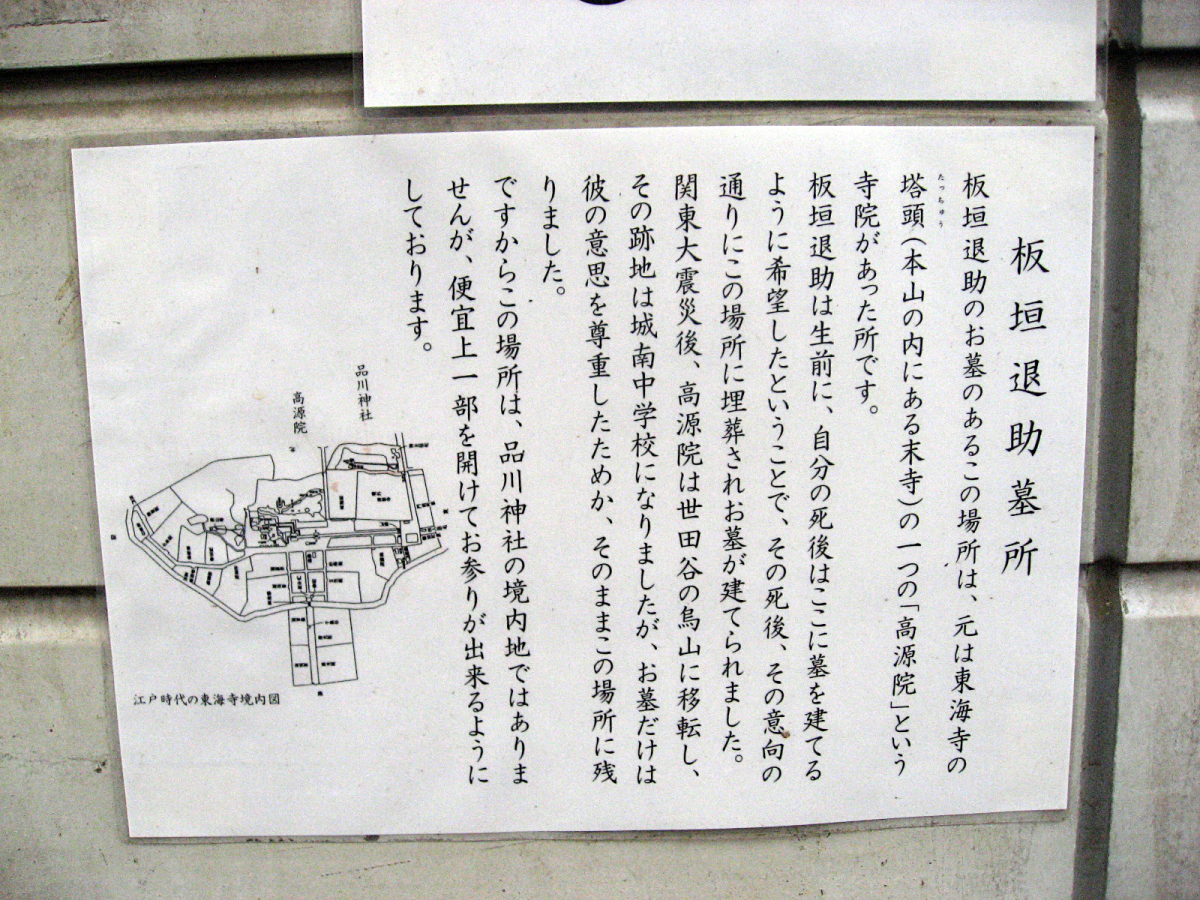 板垣退助墓所
板垣退助のお墓のあるこの場所は、元は東海寺の
たっちゅう
塔頭(本山の内にある末寺)の一つの「高源院」という
寺院があった所です。
板垣退助は生前に、自分の死後はここに墓を建てる
ように希望したということで、その死後、その意向の
通りにこの場所に埋葬されお墓が建てられました。
関東大震災後、高源院は世田谷の烏山に移転し、
その跡地は城南中学校になりましたが、お墓だけは
彼の意思を尊重したためか、そのままこの場所に残
りました。
ですからこの場所は、品川神社の境内地ではありま
せんが、便宜上一部を開けてお参りが出来るように
しております。
品川神社
高源院
江戸時代の東海寺境内図